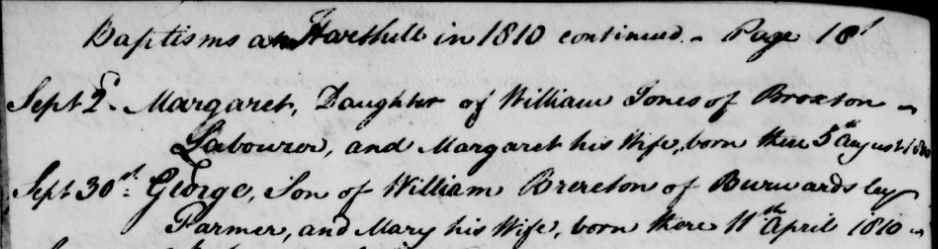 Baptisms at Harthill in 1810 continued. Page 18
Sept 2d. Margaret, Daughter of William Jones of Broxton
Labourer, and Margaret his Wife, born there 5th August 1810
Sept 30th. George, Son of William Brereton of Burwardsley
Farmer, and Mary his Wife, born there 11th April 1810